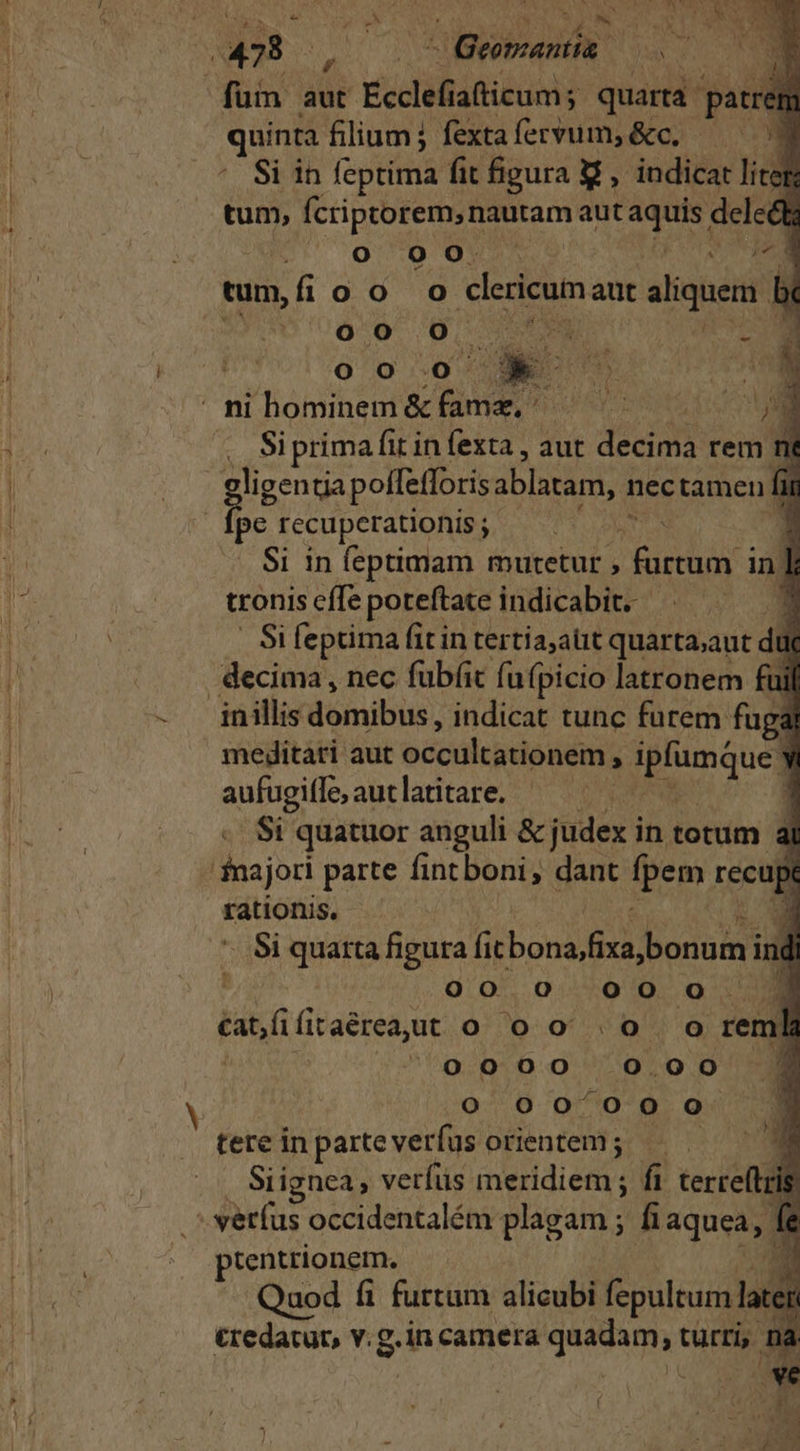 478 Geomantia
ſum aut Eccleſiaſticum; quarta patrem
quinta filium; ſexta ſervum, &c.
Si in ſeptima ſit figura ☿, indicat liter
tum, ſcriptorem, nautam aut aquis delect
o o o
tum, ſi o o o clericum aut aliquem b
o o o
o o o
ni hominem & famæ.
Si prima ſit in ſexta, aut decima rem ne
gligentia poſſeſſoris ablatam, nec tamen ſin
ſpe recuperationis;
Si in ſeptimam mutetur, furtum in l
tronis eſſe poteſtate indicabit.
Si ſeptima ſit in tertia, aut quarta, aut du
decima, nec ſubſit ſuſpicio latronem fuiſ
in illis domibus, indicat tunc furem fuga
meditari aut occultationem, ipſumque v
aufugiſſe, aut latitare.
Si quatuor anguli & judex in totum a
majori parte ſint boni, dant ſpem recupe
rationis.
Si quarta figura ſit bona, fixa, bonum indi
o o o o o o
cat, ſi ſit aërea, ut o o o o o rem la
o o o o o o o
o o o o o o
tere in parte verſus orientem;
Si ignea, verſus meridiem; ſi terreſtris
verſus occidentalém plagam; ſi aquea, ſe
ptentrionem.
Quod ſi furtum alicubi ſepultum later
credatur, v. g. in camera quadam, turri, na
ve